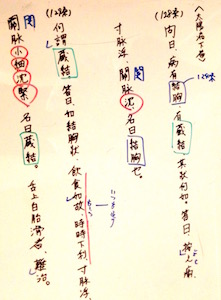 太陽病下篇
(128条)
問曰、病有結胸、有蔵結、其状何如。答曰、按之痛、
128条
寸脉浮、関脉沈、名曰結胸也。
関
(129条)
何謂蔵結。答曰、如結胸状、飲食如故、時時下利、寸脉浮、
関脉小細沈緊、名曰蔵結。舌上白胎滑者、難治。
関